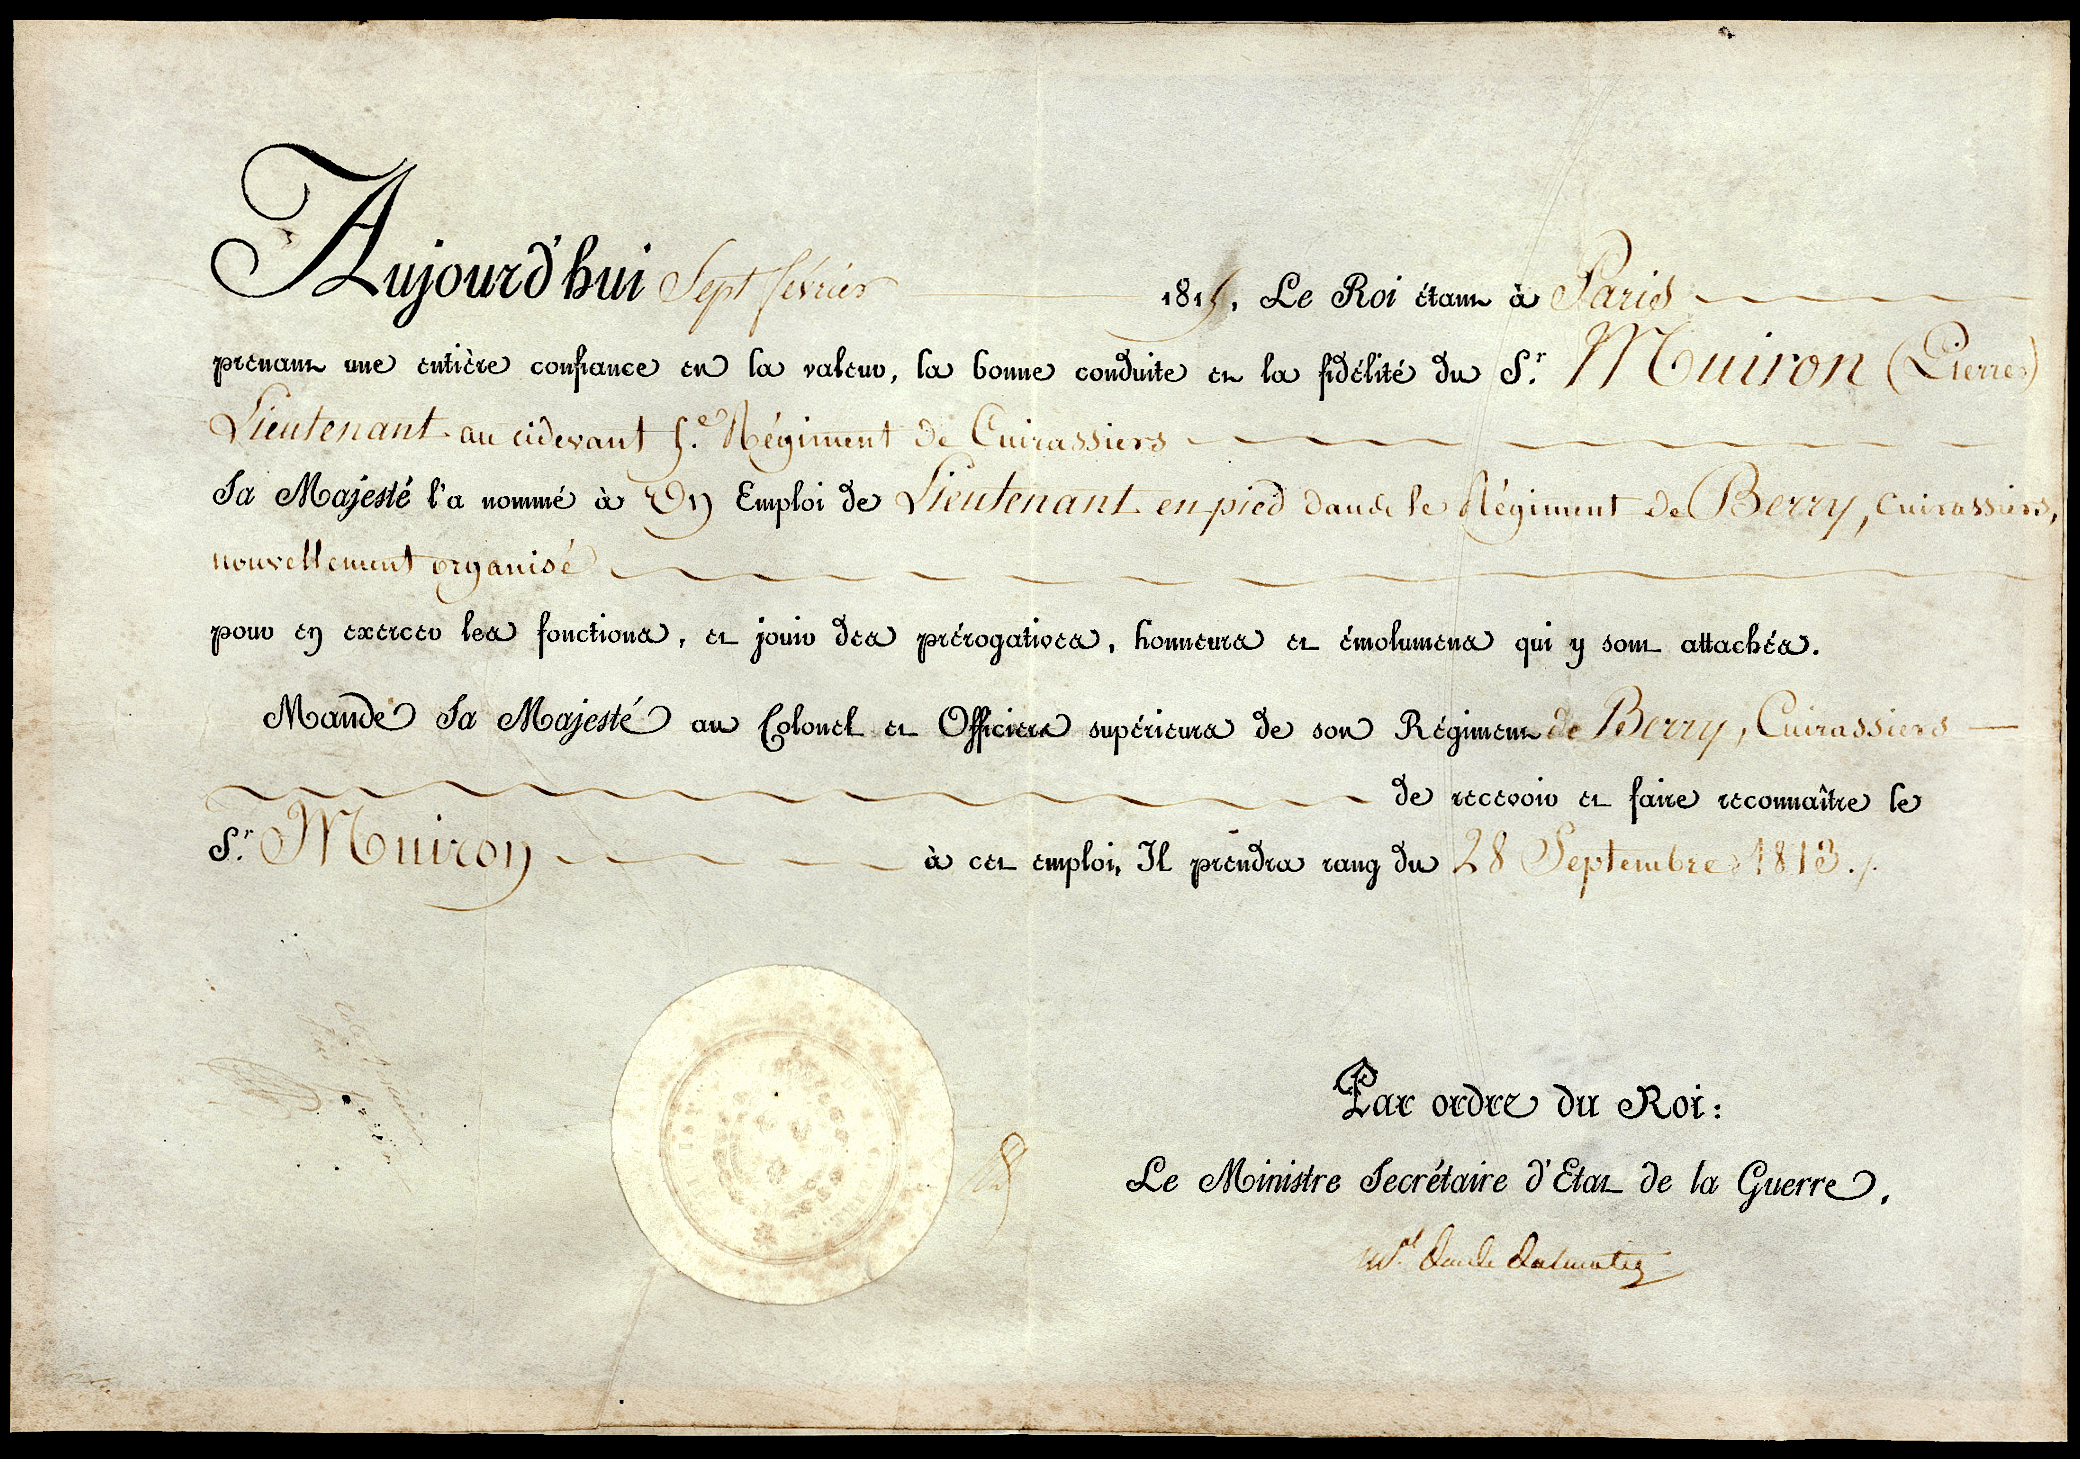 Aujourd'hui Sept février 1815, Le Roi étant à Paris
prenant une entière confiance en la valeur, la bonne conduite et la fidélité du Sr. Muiron (Pierre)
Lieutenant au cidevant 5.e Régiment de Cuirassiers
Sa Majesté l'a nommé à Un Emploi de Lieutenant en pied dans le Régiment de Berry, Cuirassiers,
nouvellement organisé
pour en exercer les fonctions, et jouir des prérogatives, honneurs et émolumens qui y sont attachés.
Mande Sa Majesté au Colonel et Officiers supérieurs de son Régiment de Berry, Cuirassiers
de recevoir et faire reconnaître le
Sr. Muiron à cet emploi, Il prendra rang du 28 Septembre 1813.
Par ordre du Roi:
Le Ministre Secrétaire d'Etat de la Guerre,
Mal. Duc de Dalmatie